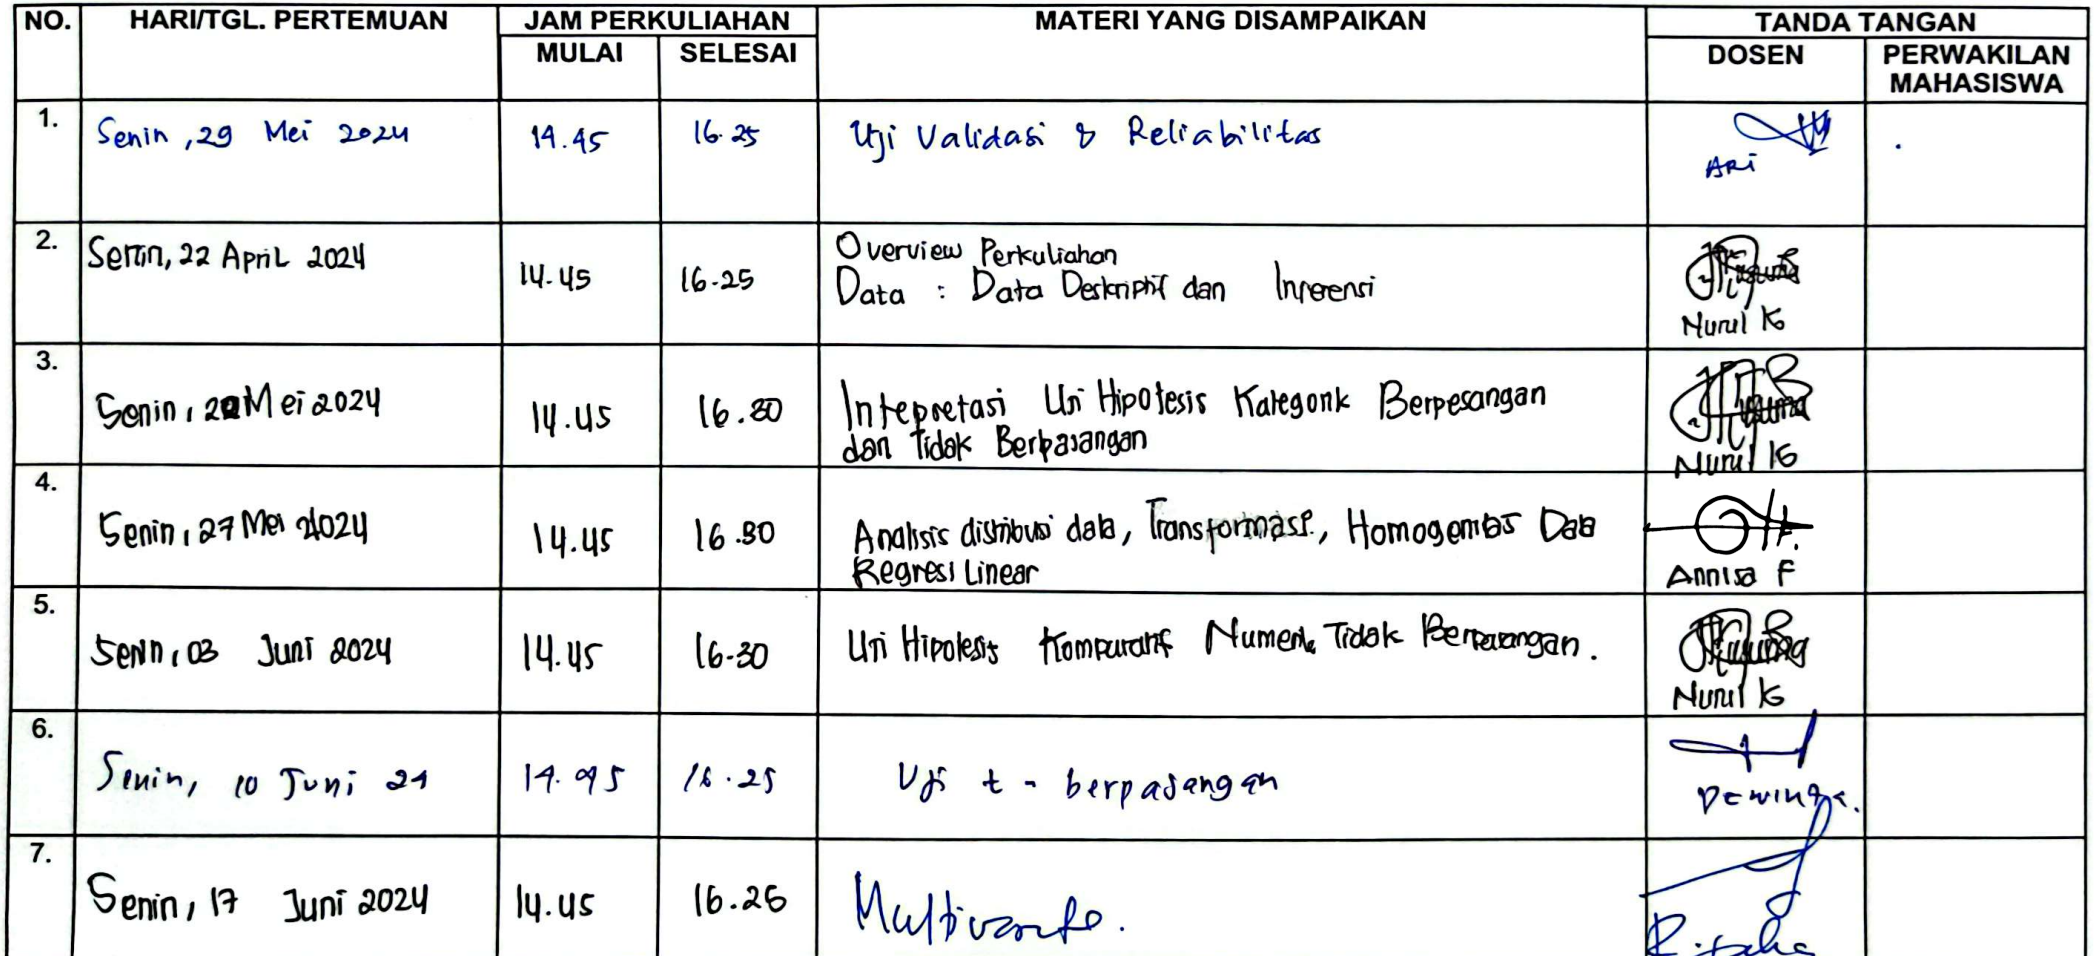 NO. HARI/TGL. PERTEMUAN JAM PERKULIAHAN MATERI YANG DISAMPAIKAN TANDA TANGAN
MULAI SELESAI DOSEN PERWAKILAN
MAHASISWA
1. Senin, 29 Mei 2024 14.45 16.25 Uji Validasi & Reliabilitas
ARi
2. Senin, 22 April 2024 14.45 16.25 Overview Perkuliahan
Data : Data Deskriptif dan Inferensi
Nurul K
3. Senin, 20 Mei 2024 14.45 16.30 Intepretasi Uji Hipotesis Kategorik Berpesangan
dan Tidak Berpasangan
Nurul K
4. Senin, 27 Mei 2024 14.45 16.30 Analisis distribusi data, Transformasi, Homogenitas Data
Regresi Linear
Annisa F
5. Senin, 03 Juni 2024 14.45 16.30 Uji Hipotesis Komparatif Numerik Tidak Berpasangan.
Nurul K
6. Senin, 10 Juni 24 14.45 16.25 Uji t - berpasangan
7. Senin, 17 Juni 2024 14.45 16.25